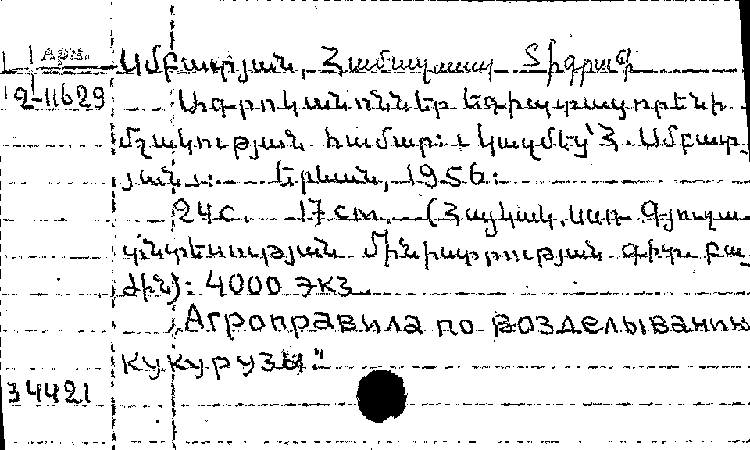 Арм.
Ամբարյան, Համապասպ Տիգրանի
2-11629
Ագրոկանոններ եգիպտացորենի
մշակության համար: Կազմեց՝ Հ. Ամբար-
յան: Երևան, 1956:
24с. 17cm. (Հայկական. ՍՍՌ Գյուղա
տնտեսության մինիստրության գիտ. բա-
ժին): 4000 экз
„Агроправила по возделыванию
кукурузы"
34421